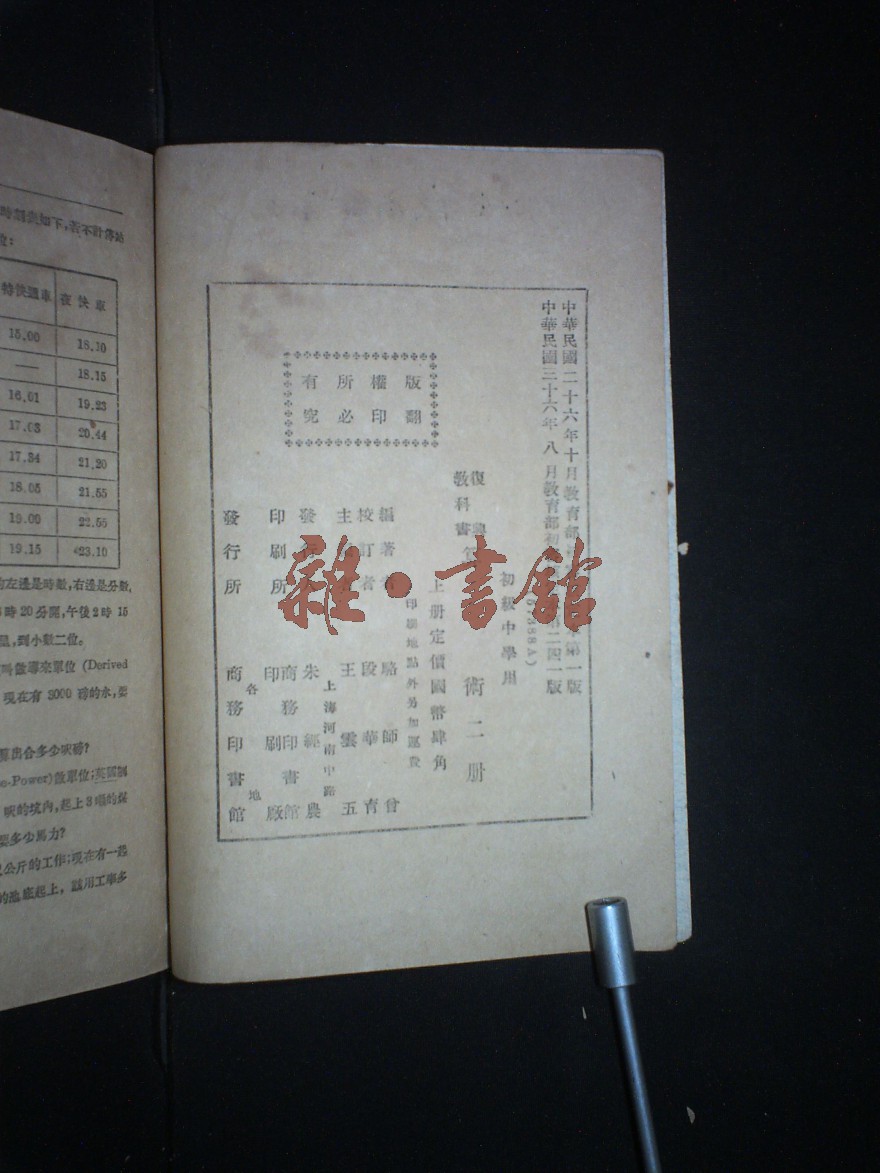 中華民國二十六年十月教育部
第一版
中華民國三十六年八月教育部初
第二四一版
初級中學用
復興
教科書
術二冊
上册定價國幣肆角
印刷地點外另加運費
版權所有
翻印必究
編著者
駱師曾
校訂者
段育華
主
王雲五
發行
朱經農
上海河南中路
印刷所
商務印書館
印刷廠
發行所
各地
商務印書館
雜·書館
時刻表如下,若不計停站
特快通車 夜快車
15.00 18.10
— 18.15
16.01 19.23
17.03 20.44
17.34 21.20
18.05 21.55
19.00 22.56
19.15 23.10
的左邊是時數,右邊是分數,
時20分開,午後2時15
到小數二位。
導來單位 (Derived
現在有 3000 磅的水,要
算出合多少呎磅?
e-Power)做單位;英國制
呎的坑內,起上3噸的煤
要多少馬力?
公斤的工作;現在有一器
的池底起上,該用工率多